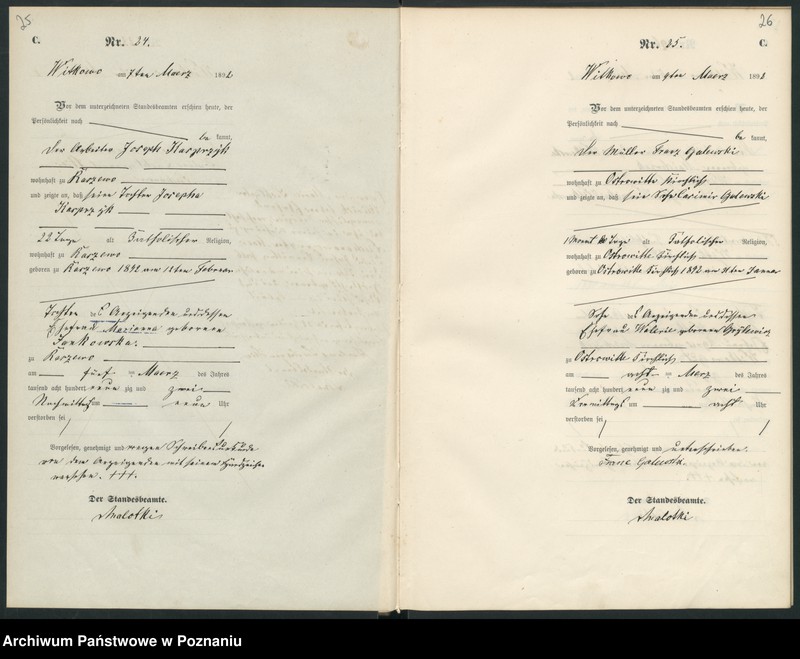 25
C.
Nr. 24.
Witkowo am 7ten Maerz 1892
Vor dem unterzeichneten Standesbeamten erschien heute, der
Persönlichkeit nach
be kannt,
der Arbeiter Joseph Kasprzyk
wohnhaft zu Karzewo
und zeigte an, daß seine Tochter Josepha
Kasprzyk
22 Tage alt katholischer Religion,
wohnhaft zu Karzewo
geboren zu Karzewo 1892 am 11ten Februar
Tochter des Anzeigenden und dessen
Ehefrau Marianna geborenen
Jankowska.
zu Karzewo
am fünf ten Maerz des Jahres
tausend acht hundert neun zig und zwei
Nachmittags um neun Uhr
verstorben sei
Vorgelesen, genehmigt und wegen Schreibensunkunde
von dem Anzeigenden mit seinem Handzeichen
versehen. +++.
Der Standesbeamte.
Malotki
26
Nr. 25.
C.
Witkowo am 9ten Maerz 1892
Vor dem unterzeichneten Standesbeamten erschien heute, der
Persönlichkeit nach
be kannt,
der Müller Franz Galewski
wohnhaft zu Ostrowitte Kirchlich
und zeigte an, daß sein Sohn Casimir Galewski
1 Monat Tage alt katholischer Religion,
wohnhaft zu Ostrowitte Kirchlich
geboren zu Ostrowitte Kirchlich 1892 am Januar
Sohn des Anzeigenden und dessen
Ehefrau Valerie geborenen
zu Ostrowitte Kirchlich
am acht ten Maerz des Jahres
tausend acht hundert neun zig und zwei
Vormittags um acht Uhr
verstorben sei
Vorgelesen, genehmigt und unterschrieben.
Der Standesbeamte.
Malotki
Archiwum Państwowe w Poznaniu